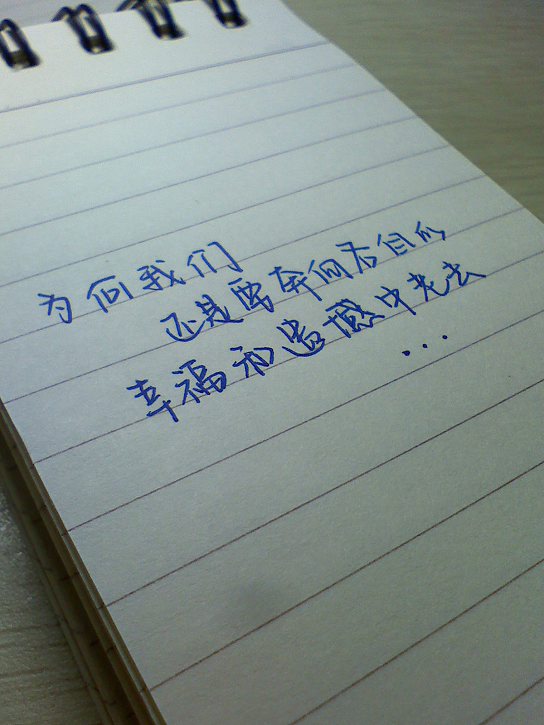 为何我们
还是要奔向各自的
幸福和遗憾中老去
...